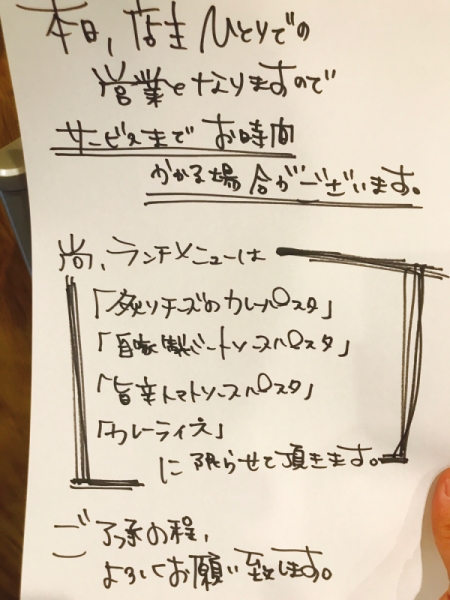 本日、店主ひとりでの
営業となりますので
サービスまでお時間
かかる場合がございます。
尚、ランチメニューは
「炙りチーズのカレーパスタ」
「自家製ミートソースパスタ」
「旨辛トマトソースパスタ」
「カレーライス」
に限らせて頂きます。
ご了承の程、
よろしくお願い致します。